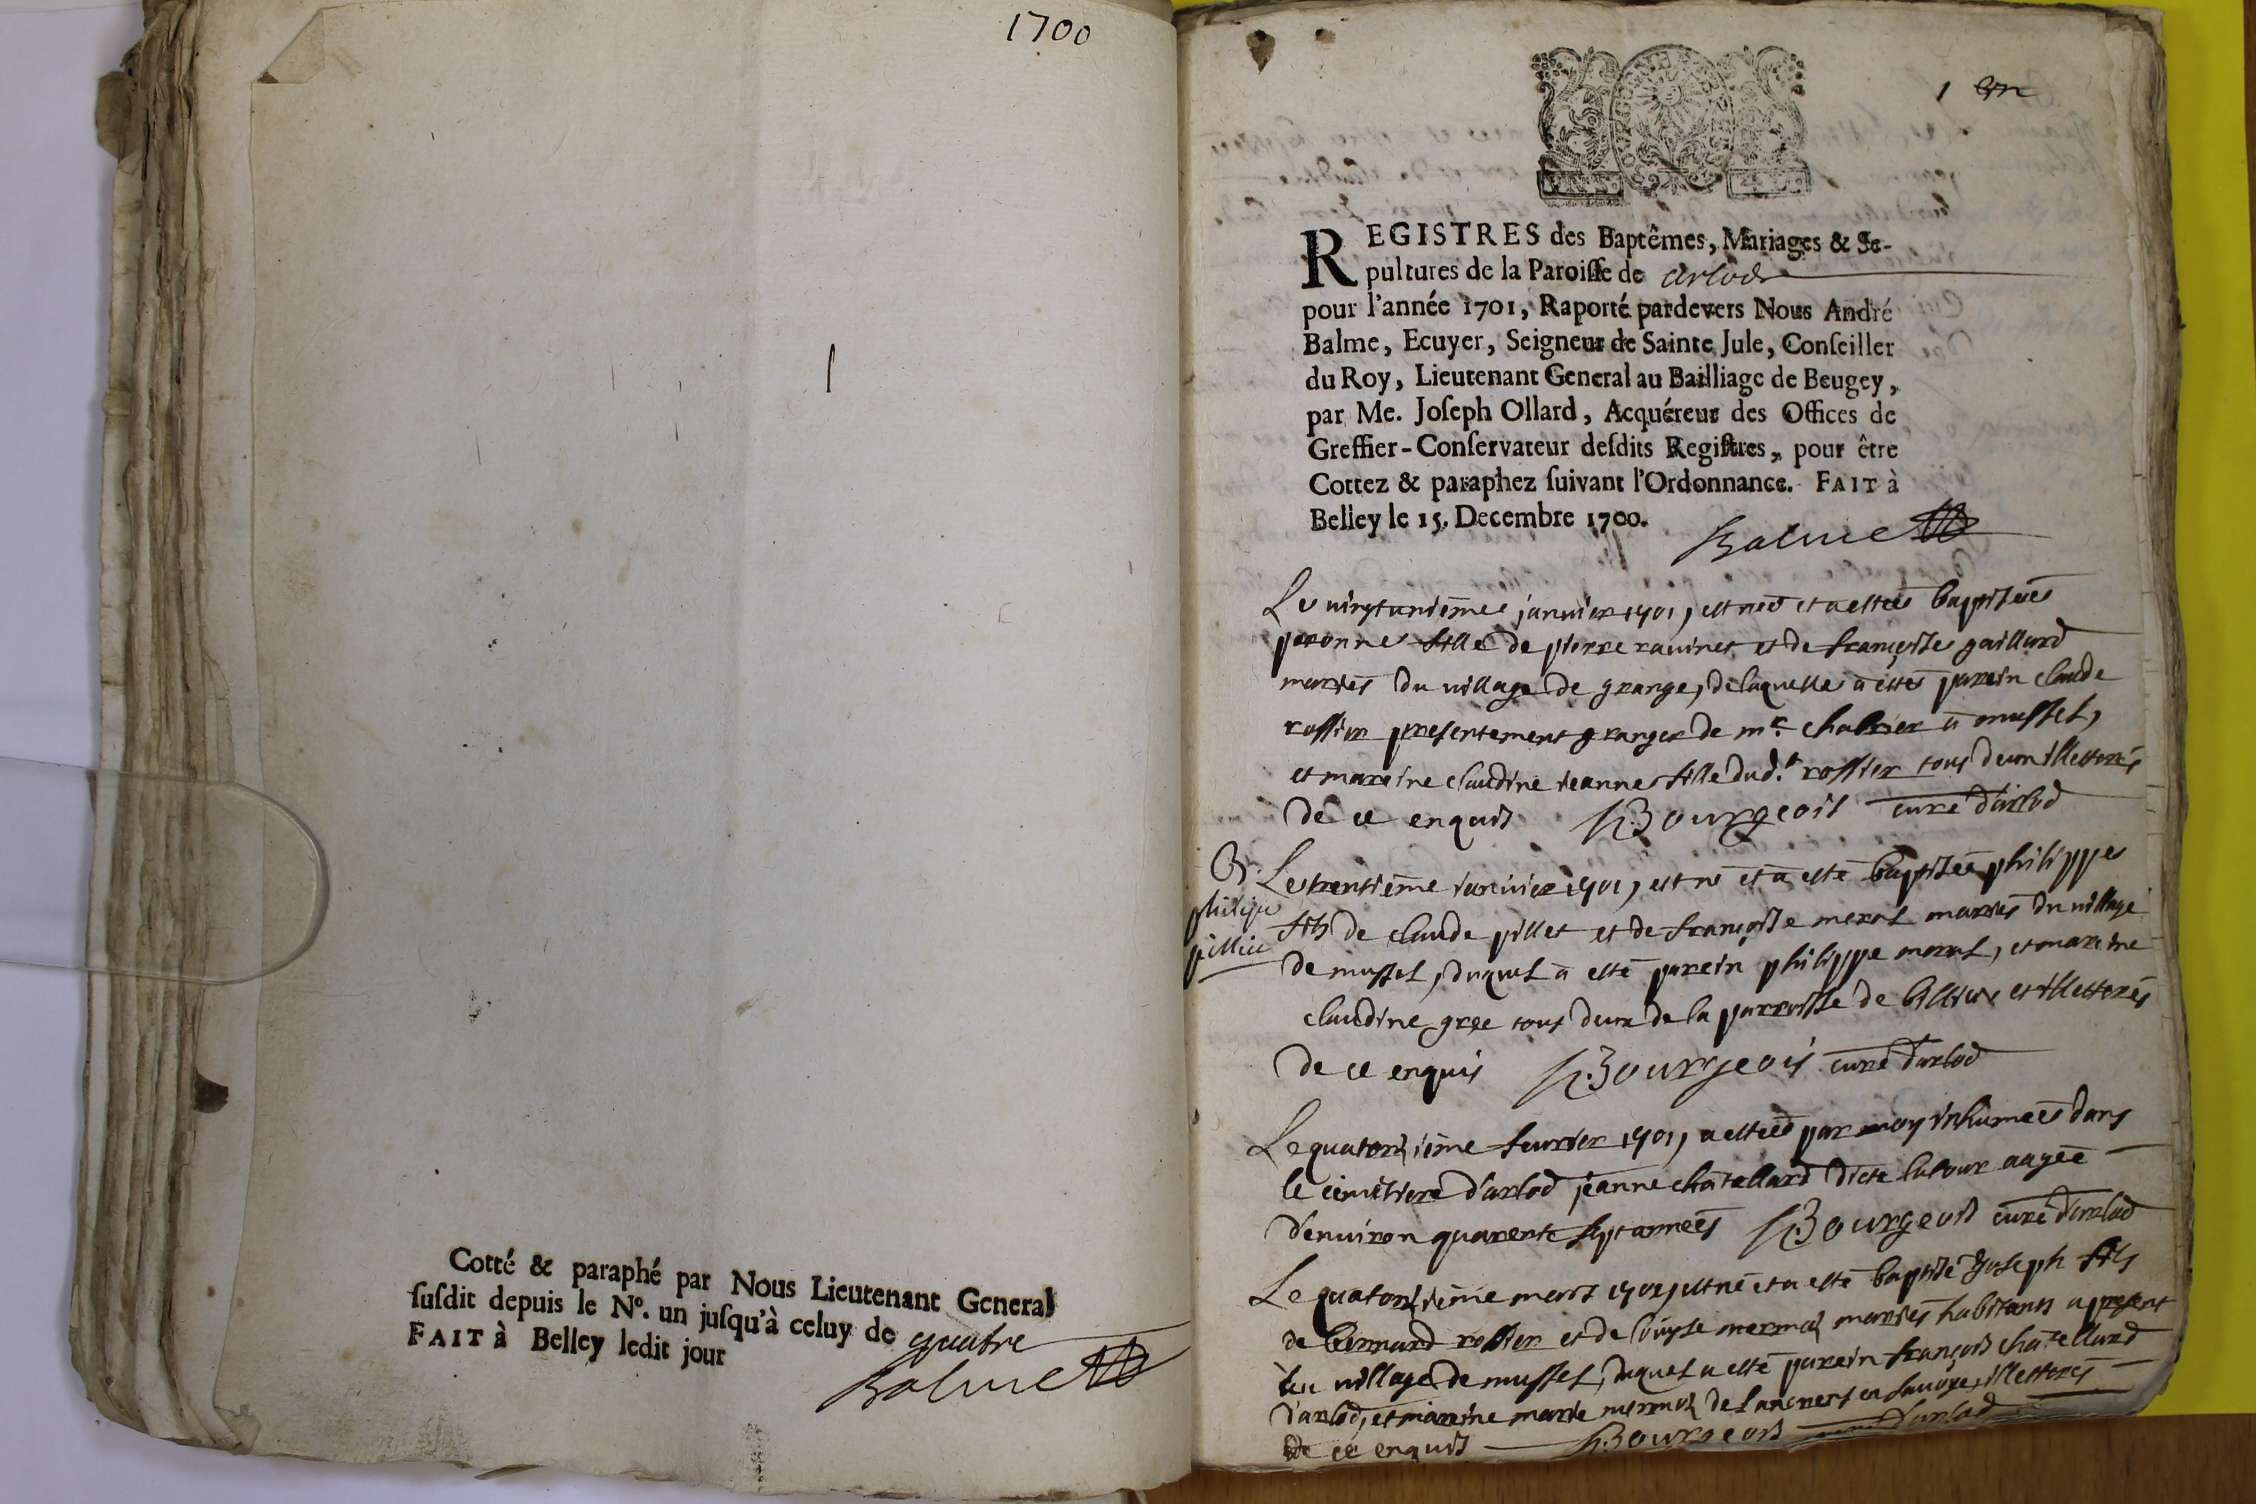 1700
Cotté & paraphé par Nous Lieutenant General
susdit depuis le N°. un jusqu'à celuy de quatre
FAIT à Belley ledit jour
Balme
1 un
REGISTRES des Baptêmes, Mariages & Se-
pultures de la Paroisse de Arlod
pour l'année 1701, Raporté pardevers Nous André
Balme, Ecuyer, Seigneur de Sainte Jule, Conseiller
du Roy, Lieutenant General au Bailliage de Beugey,
par Me. Joseph Ollard, Acquéreur des Offices de
Greffier-Conservateur desdits Registres, pour être
Cottez & paraphez suivant l'Ordonnance. FAIT à
Belley le 15. Decembre 1700.
Balme
Le vingtunième janvier 1701, est née et a estée baptisée
peronne fille de pierre ravinet et de françoise gaillard
mariés du village de grange, de laquelle a esté parein claude
rossier presentement granger de mr. chabrier a mussel,
et mareine claudine jeanne fille dud.t rossier tous deux illettorés
de ce enquis Bourgeois curé d'arlod
B.
philipe
pillie
Le trentième janvier 1701, est né et a esté baptisé philippe
fils de claude pillet et de françoise meral mariés du village
de mussel, duquel a esté parein philippe meral, et mareine
claudine gree tous deux de la parroisse de billiat et illettorés
de ce enquis Bourgeois curé d'arlod
Le quatorzième feuvrier 1701, a estée par moy inhumée dans
le cimetiere d'arlod jeanne chatellard dicte latour aagée
d'environ quarente sept années Bourgeois curé d'arlod
Le quatorzième mars 1701, est né et a esté baptisé Joseph fils
de bernard rossier et de louyse mermoz mariés habitants a present
au village de mussel, duquel a esté parein françois chatellard
d'arlod, et mareine marie mermoz de en savoye, illettorés
de ce enquis Bourgeois curé d'arlod